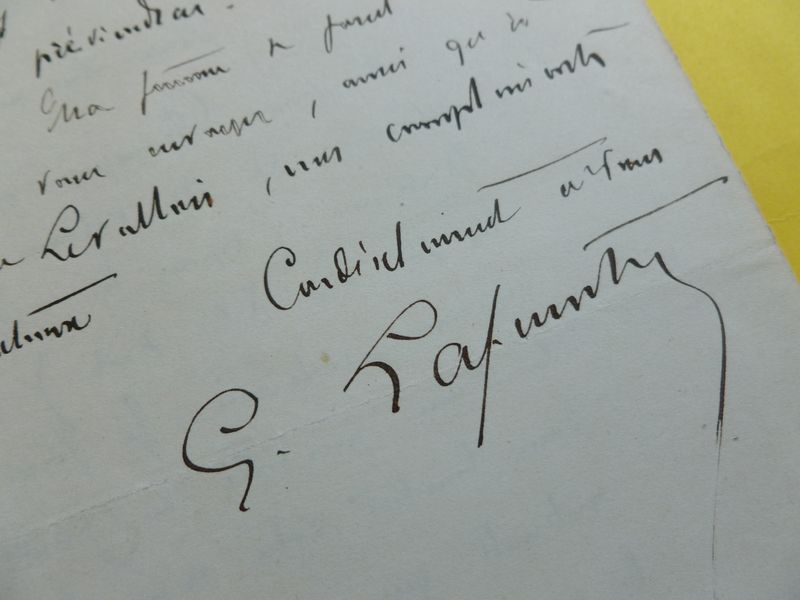 préviendrai.
Ma femme se joint
vous envoyer, ainsi qu'à
Levallois, nos compliments
Cordialement à vous
G. Lafenestre